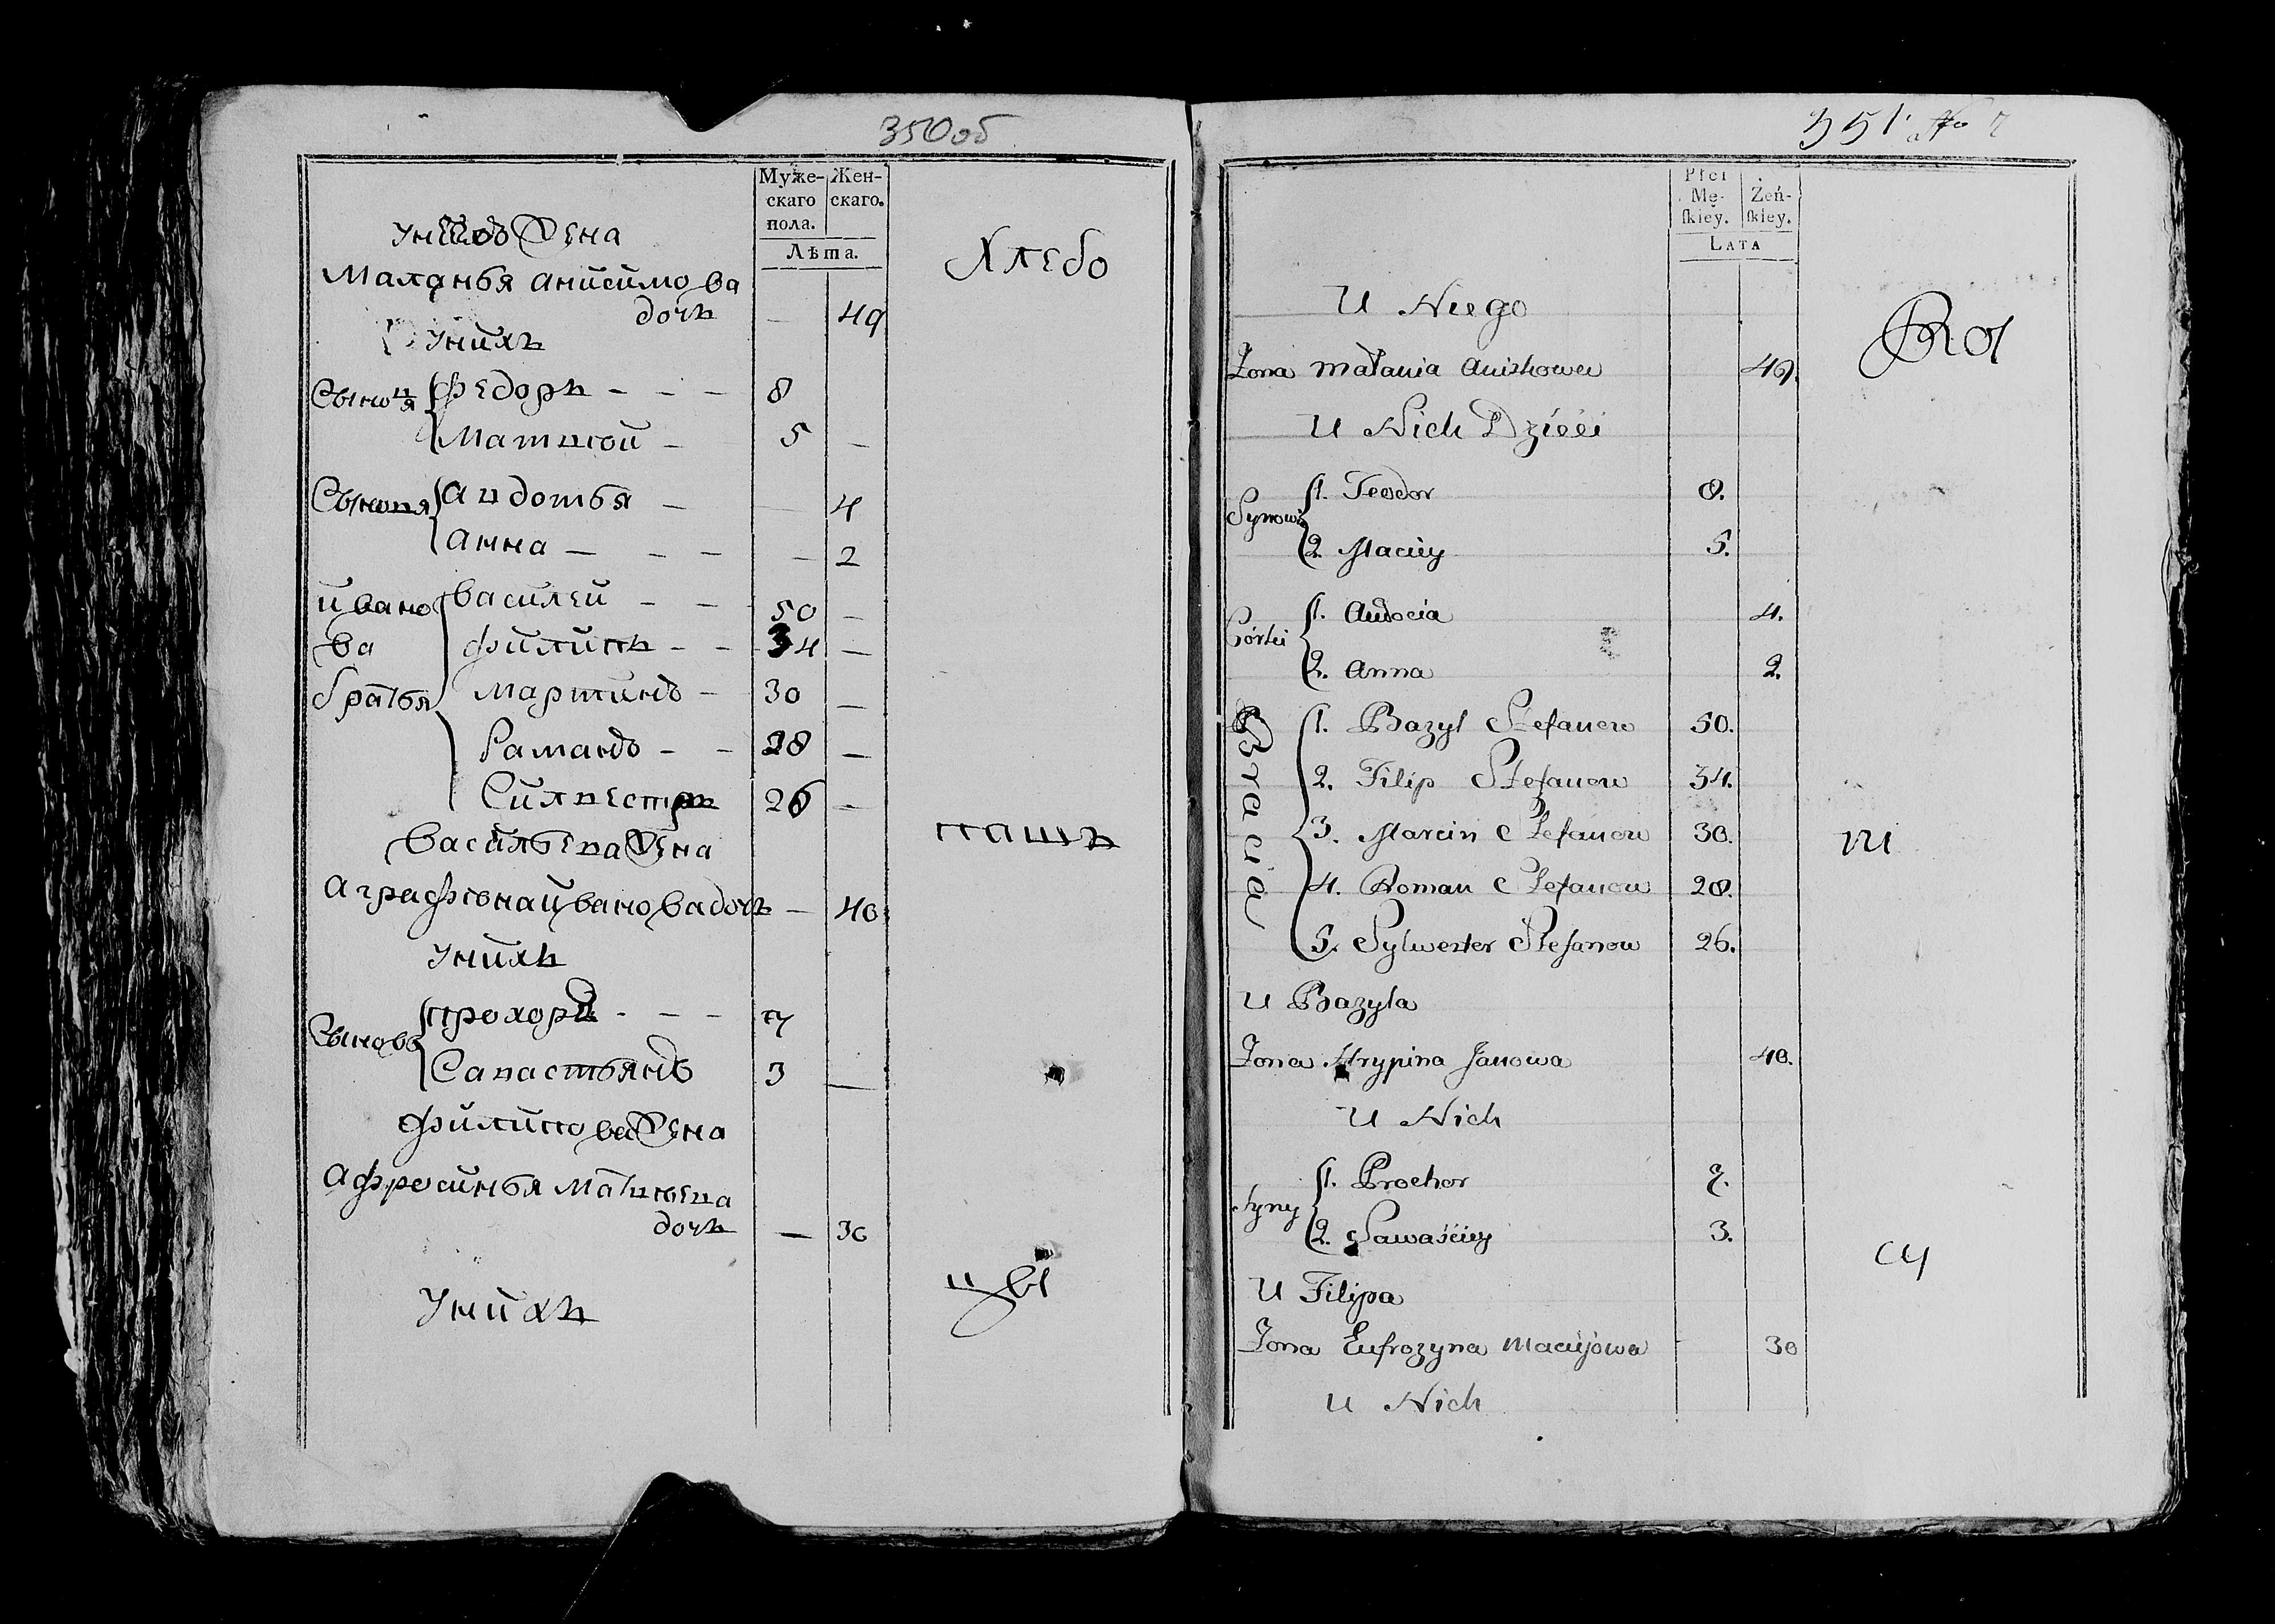 350об
Муже-
скаго
пола.
Жен-
скаго.
Лѣта.
Хлебо
Маланья анисимова
дочъ — 49
унихъ
Сыновя
федоръ — — — 8
Матвеи — 5 —
авдотья — — 4
анна — — — — 2
ивано
ва
братья
василеи — — 50 —
филипъ — — 34 —
мартинъ — 30 —
Раманъ — — 28 —
Силвестръ 26 —
васильева жена
пашъ
аграфена иванова дочъ — 40
унихъ
Сыновя
прохоръ — — — 7
Савастьянъ 3 —
филипова жена
афросинья матвеева
дочъ — 30
цы
Унихъ
351
Płci
Mę-
skiey.
Żeń-
skiey.
LATA
U Niego
Rol
Żona Matania Anishowa 49.
U Nich Dzieéi
Synowi
1. Teodor 8.
2. Maciey 5.
Córki
1. Audocia 4.
2. Anna 2.
Bracia
1. Bazyl Stefanow 50.
2. Filip Stefanow 34.
3. Marcin Stefanow 30.
4. Roman Stefanow 28.
5. Sylwester Stefanow 26.
ni
U Bazyla
Żona Hrypina Janowa 40.
U Nich
Syny
1. Prochor 7.
2. Sawaściey 3.
cy
U Filipa
Żona Eufrozyna Maciejowa 30
U Nich